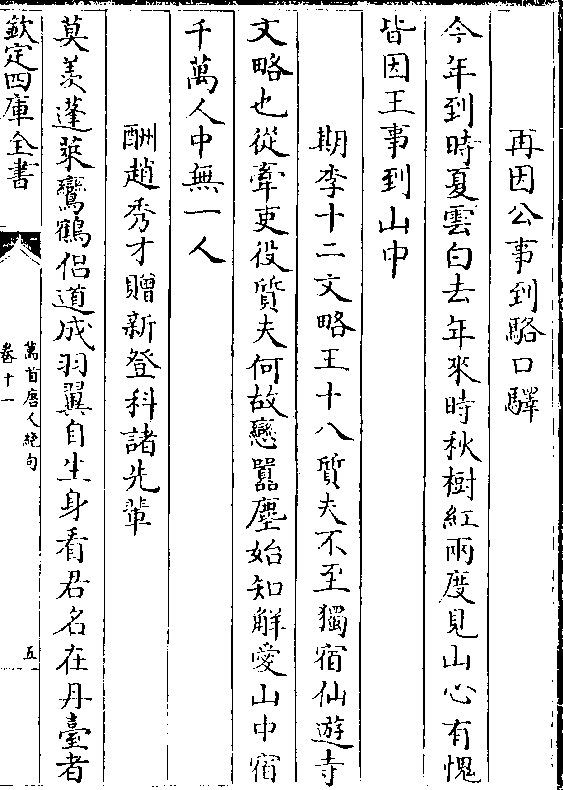 再因公事到駱口驛
今年到時夏雲白去年來時秋樹紅兩度見山心有愧
皆因王事到山中
期李十二文略王十八質夫不至獨宿仙遊寺
文略也從牽吏役質夫何故戀囂塵始知解愛山中宿
千萬人中無一人
酬趙秀才贈新登科諸先輩
莫羨蓬萊鸞鶴侶道成羽翼自生身看君名在丹臺者
欽定四庫全書
萬首唐人絶句
卷十一
五